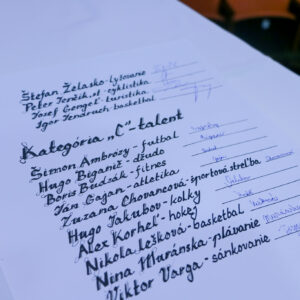 Štefan Želasko - lyžovanie
Peter Jenčik, st - cyklistika
Jozef Gengeľ - turistika
Igor Jendruch basketbal
Kategória „C" - talent
Šimon Ambrózy - futbal
Hugo Biganič - džudo
Boris Budzák - fitnes
Ján Gajan - atletika
Zuzana Chovancová - športová streľba
Hugo Jakubov - kolky
Alex Korheľ - hokej
Nikola Lešková - basketbal
Nina Muránska - plávanie
Viktor Varga - sánkovanie